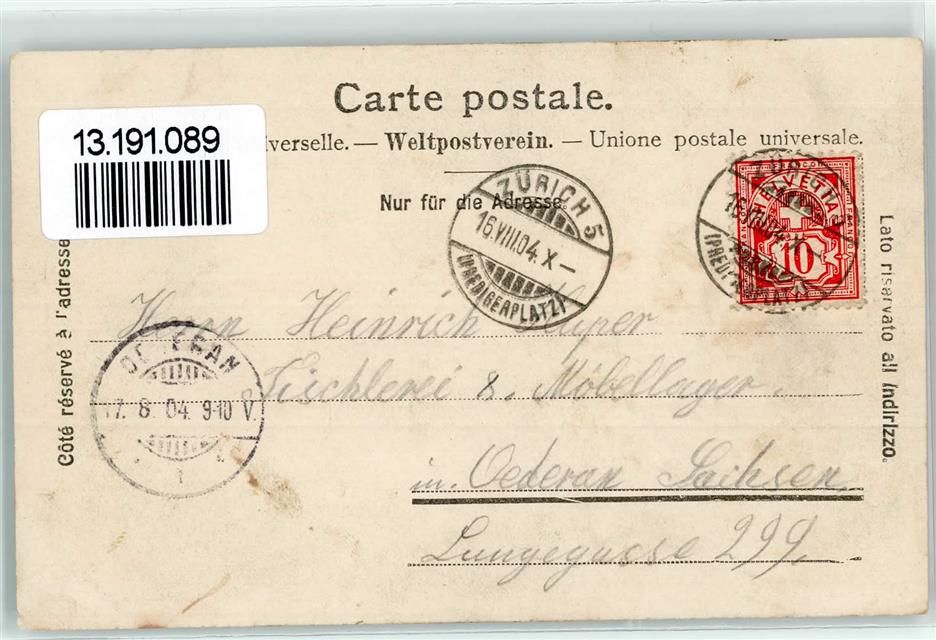 Carte postale.
13.191.089
verselle. — Weltpostverein. — Unione postale universale.
Nur für die Adresse.
ZÜRICH 5
16.VIII.04. X —
(PREDIGERPLATZ)
HELVETIA
10
Côté réservé à l'adresse
Lato riservato all indirizzo.
Herrn Heinrich
Tischlerei & Möbellager
in Oederan Sachsen
Langegasse 299.
OEDERAN
17. 8. 04. 9-10 V.